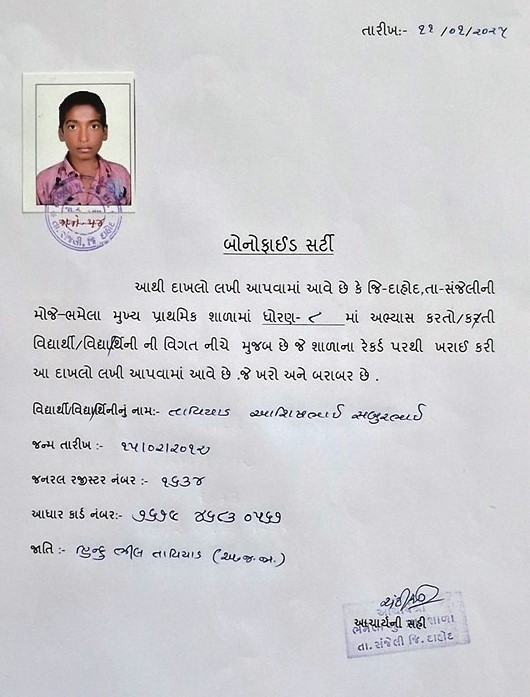 તારીખ:- ૨૨ /૦૨/૨૦૨૫
બોનોફાઈડ સર્ટી
આથી દાખલો લખી આપવામાં આવે છે કે જિ-દાહોદ,તા-સંજેલીની
મોજે-ભમેલા મુખ્ય પ્રાથમિક શાળામાં ધોરણ- ૮ માં અભ્યાસ કરતો/કરતી
વિદ્યાર્થી/વિદ્યાર્થિની ની વિગત નીચે મુજબ છે જે શાળાના રેકર્ડ પરથી ખરાઈ કરી
આ દાખલો લખી આપવામાં આવે છે .જે ખરો અને બરાબર છે .
વિદ્યાર્થી/વિદ્યાર્થિનીનું નામ:- તાવિયાડ
જન્મ તારીખ :- ૧૫/૦૨/૨૦૧૨
જનરલ રજીસ્ટર નંબર :- ૧૬૩૪
આધાર કાર્ડ નંબર:-
જાતિ :- હિન્દુ ભીલ તાવિયાડ (અ.જ.જા.)
આચાર્યની સહી
તા.સંજેલી જિ. દાહોદ